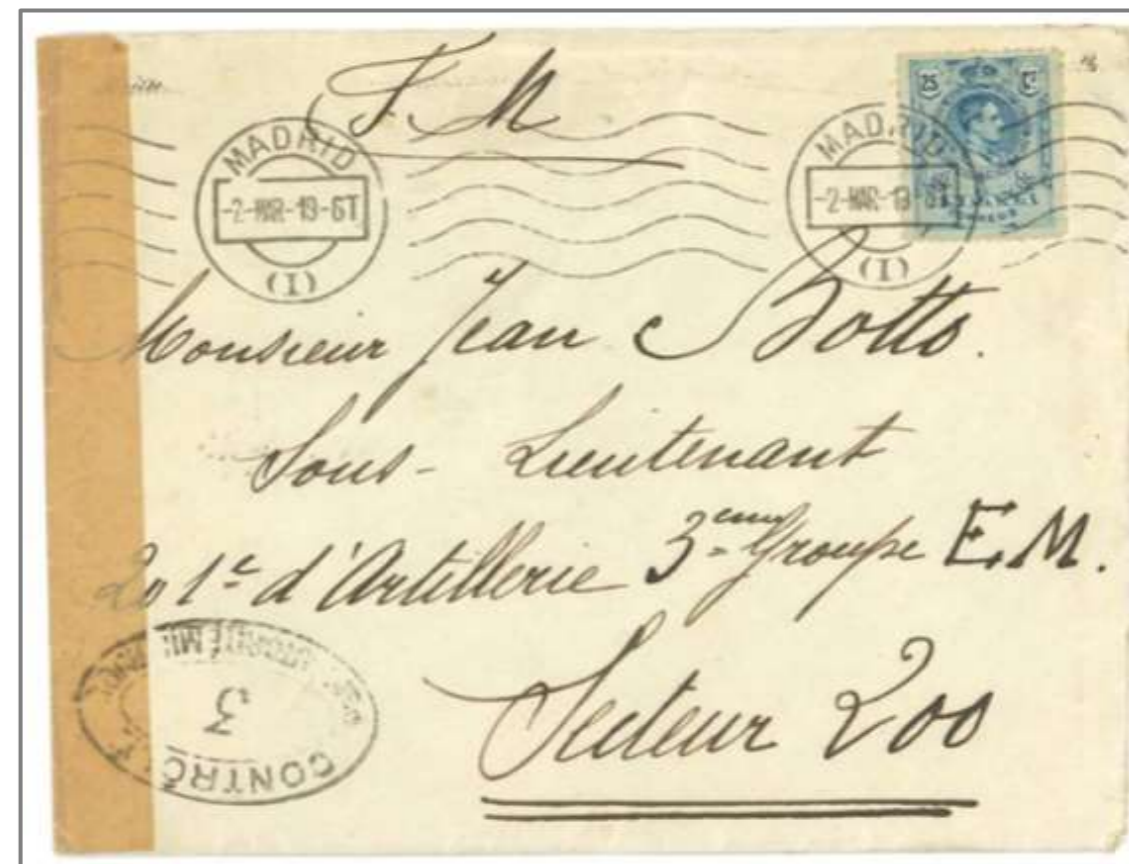 F. M
MADRID
-2-MAR-19-6T
(I)
MADRID
-2-MAR-19-6T
(I)
25 Cs
Monsieur Jean Botto.
Sous-Lieutenant
201e d'Artillerie 3eme Groupe E.M.
Secteur 200
3